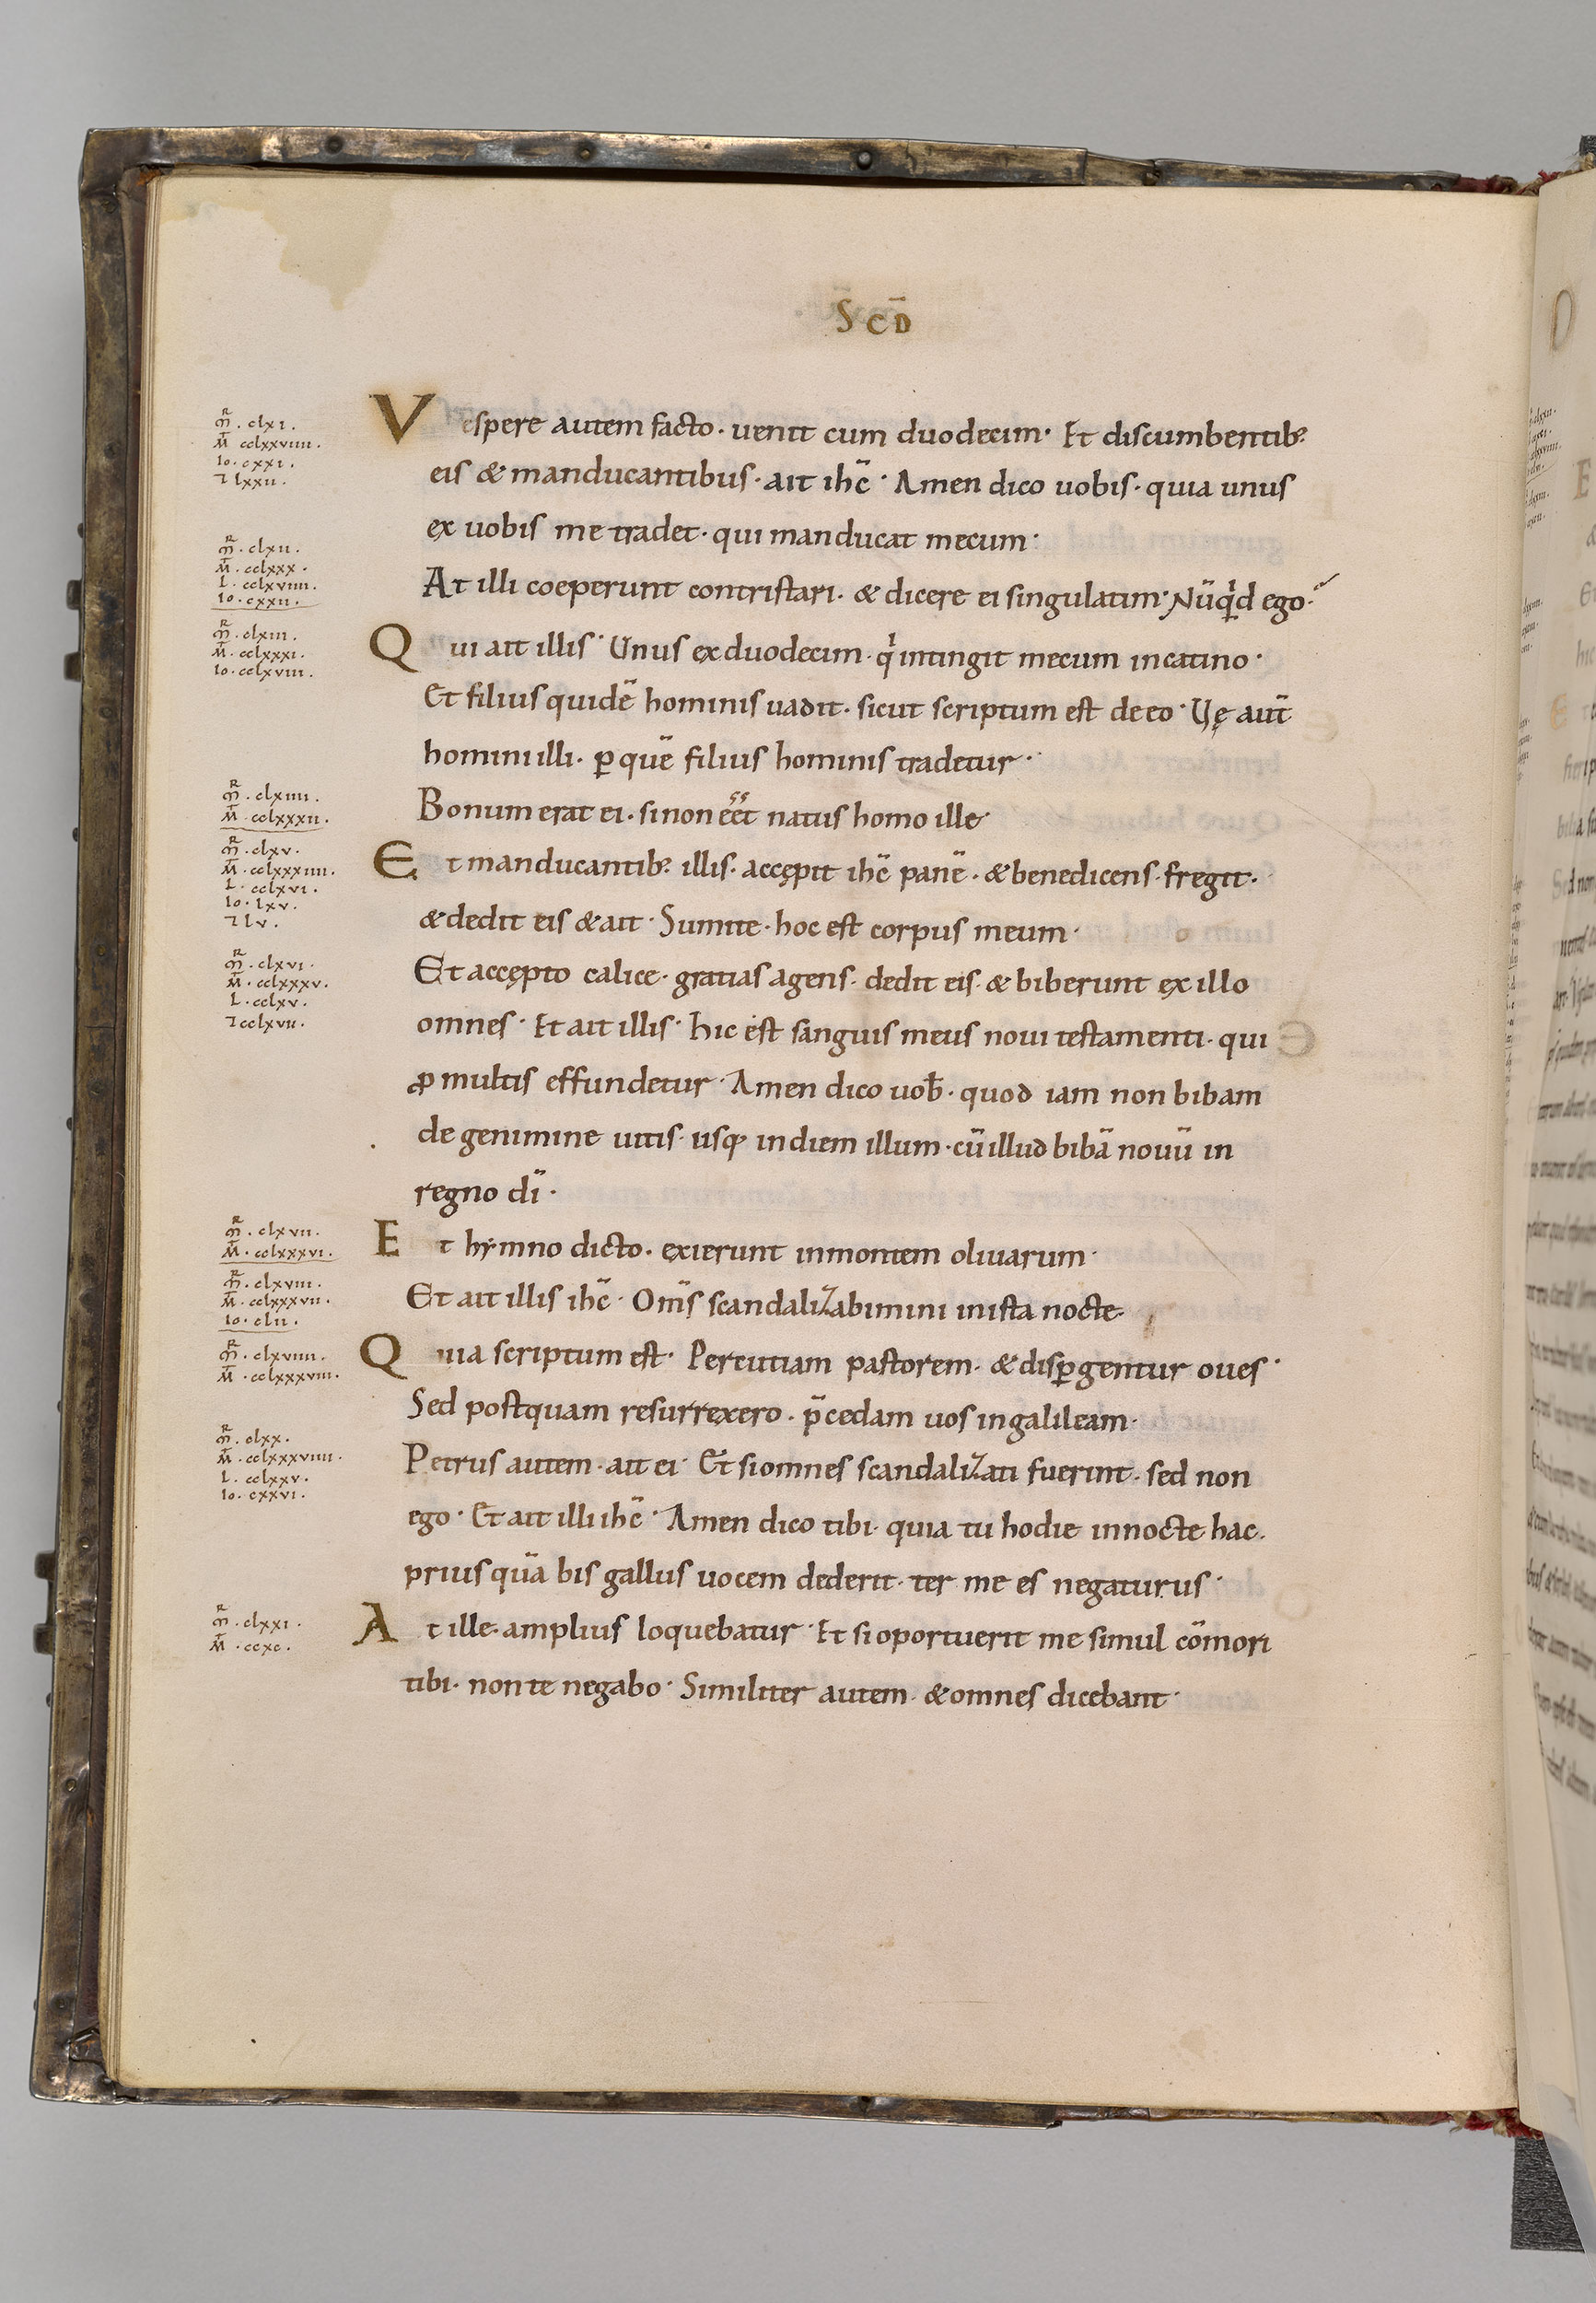 S̄ C D̄
Vespere autem facto · uenit cum duodecim · Et discumbentib;
eis & manducantibus · ait ihc̄ · Amen dico uobis · quia unus
ex uobis me tradet · qui manducat mecum ·
At illi coeperunt contristari · & dicere ei singulatim · Nūqͥd ego ·
Qui ait illis · Unus ex duodecim · qͥ intingit mecum in catino ·
Et filius quidē hominis uadit · sicut scriptum est de eo · Vę aut̄
homini illi · ꝑ quē filius hominis tradetur ·
Bonum erat ei · si non eēt natus homo ille ·
Et manducantib; illis · accępit ihc̄ panē · & benedicens · fregit ·
& dedit eis & ait · Sumite · hoc est corpus meum ·
Et accępto calice · gratias agens · dedit eis · & biberunt ex illo
omnes · Et ait illis · hic est sanguis meus noui testamenti · qui
ꝓ multis effundetur · Amen dico uob̄ · quod iam non bibam
de genimine uitis · usq; in diem illum · cū illud bibā nouū in
regno dī ·
Et hẏmno dicto · exierunt in montem oliuarum ·
Et ait illis ihc̄ · Om̄s scandalizabimini in ista nocte ·
Quia scriptum est · Percutiam pastorem · & disꝑgentur oues ·
Sed postquam resurrexero · p̄cedam uos in galileam ·
Petrus autem · ait ei · Et si omnes scandalizati fuerint · sed non
ego · Et ait illi ihc̄ · Amen dico tibi · quia tu hodie in nocte hac ·
prius quā bis gallus uocem dederit · ter me es negaturus ·
At ille · amplius loquebatur · Et si oportuerit me simul cōmori
tibi · non te negabo · Similiter autem · & omnes dicebant ·
m̄ · clxi ·
M̄ · cclxxviiii ·
io · cxxi ·
⁊ lxxii ·
m̄ · clxii ·
M̄ · cclxxx ·
L · cclxviiii ·
io · cxxii ·
m̄ · clxiii ·
M̄ · cclxxxi ·
io · cclxviii ·
m̄ · clxiiii ·
M̄ · cclxxxii ·
m̄ · clxv ·
M̄ · cclxxxiiii ·
L · cclxvi ·
io · lxv ·
⁊ lv ·
m̄ · clxvi ·
M̄ · cclxxxv ·
L · cclxv ·
⁊ cclxvii ·
m̄ · clxvii ·
M̄ · cclxxxvi ·
m̄ · clxviii ·
M̄ · cclxxxvii ·
io · clii ·
m̄ · clxviiii ·
M̄ · cclxxxviii ·
m̄ · clxx ·
M̄ · cclxxxviiii ·
L · cclxxv ·
io · cxxvi ·
m̄ · clxxi ·
M̄ · ccxc ·